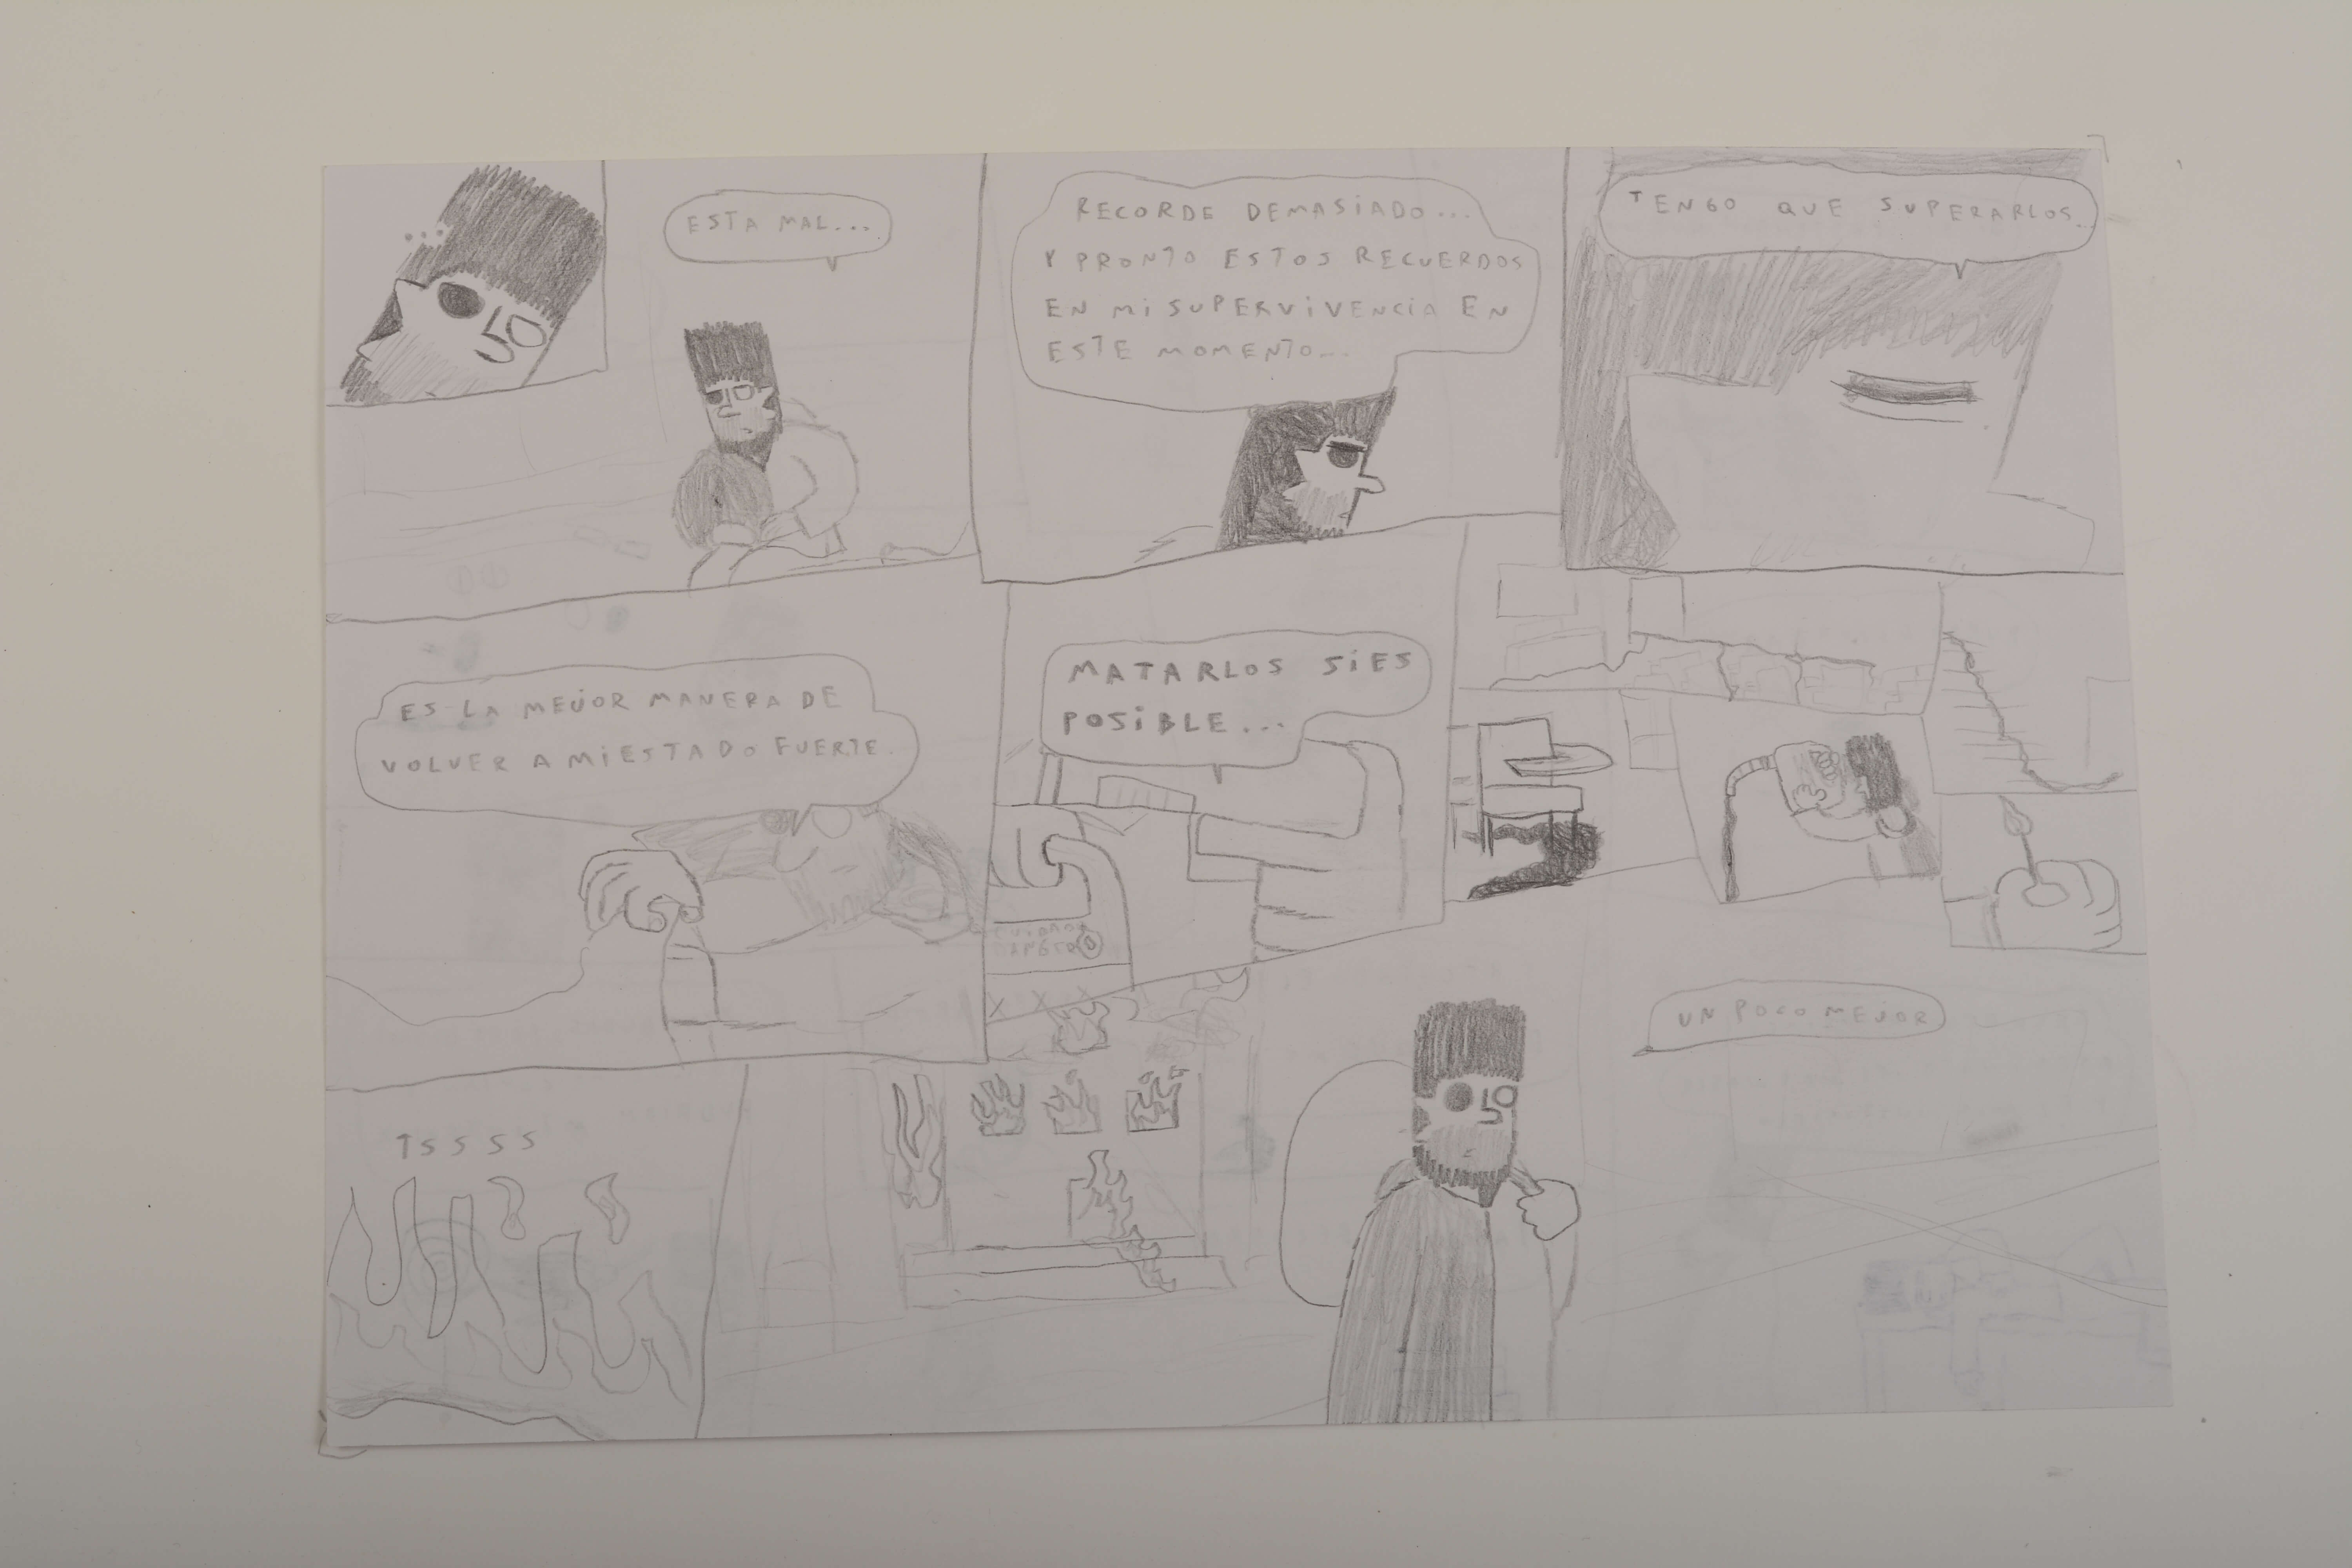 ...
ESTA MAL...
RECORDE DEMASIADO...
Y PRONTO ESTOS RECUERDOS
EN MI SUPERVIVENCIA EN
ESTE MOMENTO...
TENGO QUE SUPERARLOS...
ES LA MEJOR MANERA DE
VOLVER A MI ESTADO FUERTE.
MATARLOS SI ES
POSIBLE...
CUIDADO
X X X
TSSSS
UN POCO MEJOR